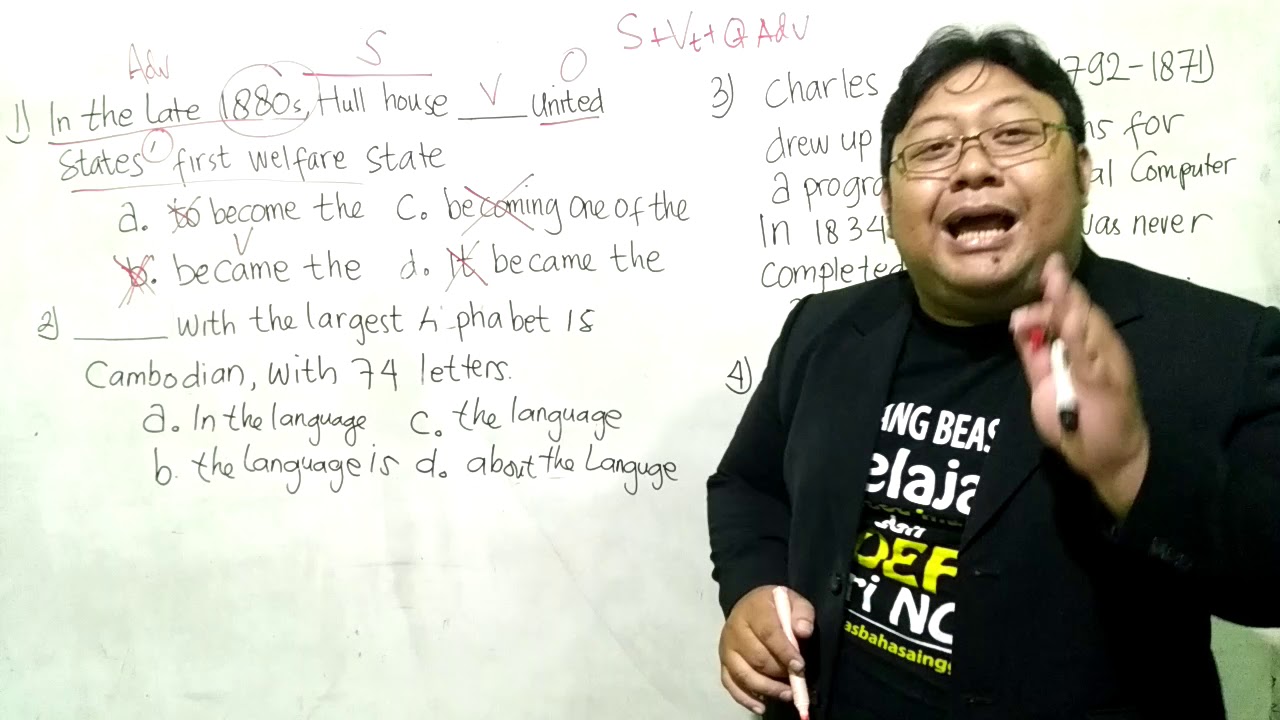 S+Vt+O+Adv
Adv
S
V
O
1) In the late 1880s, Hull house ____ United
States' first welfare state
a. to become the c. becoming one of the
V
b. became the d. It became the
2) ____ with the largest
Cambodian, with 74 letters.
a. In the language c. the language
b. the language is d. about the Languge
3) Charles 1792-1871)
drew up for
a Computer
In 1834 was never
completed
4)
elaja
dan
ri
asbahasaing